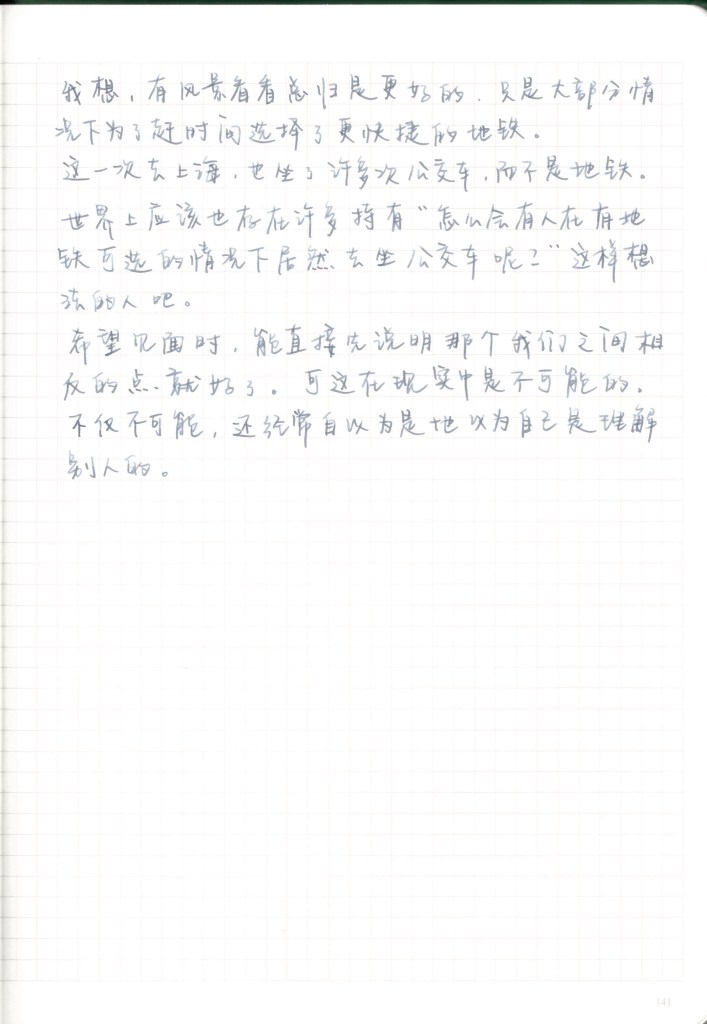 我想，有风景看看总归是更好的．只是大部分情
况下为了赶时间选择了更快捷的地铁。
这一次去上海，也坐了许多次公交车，而不是地铁。
世界上应该也存在许多持有“怎么会有人在有地
铁可选的情况下居然去坐公交车呢？”这样想
法的人吧。
希望见面时，能直接先说明那个我们之间相
反的点就好了。可这在现实中是不可能的．
不仅不可能，还经常自以为是地以为自己是理解
别人的。
141